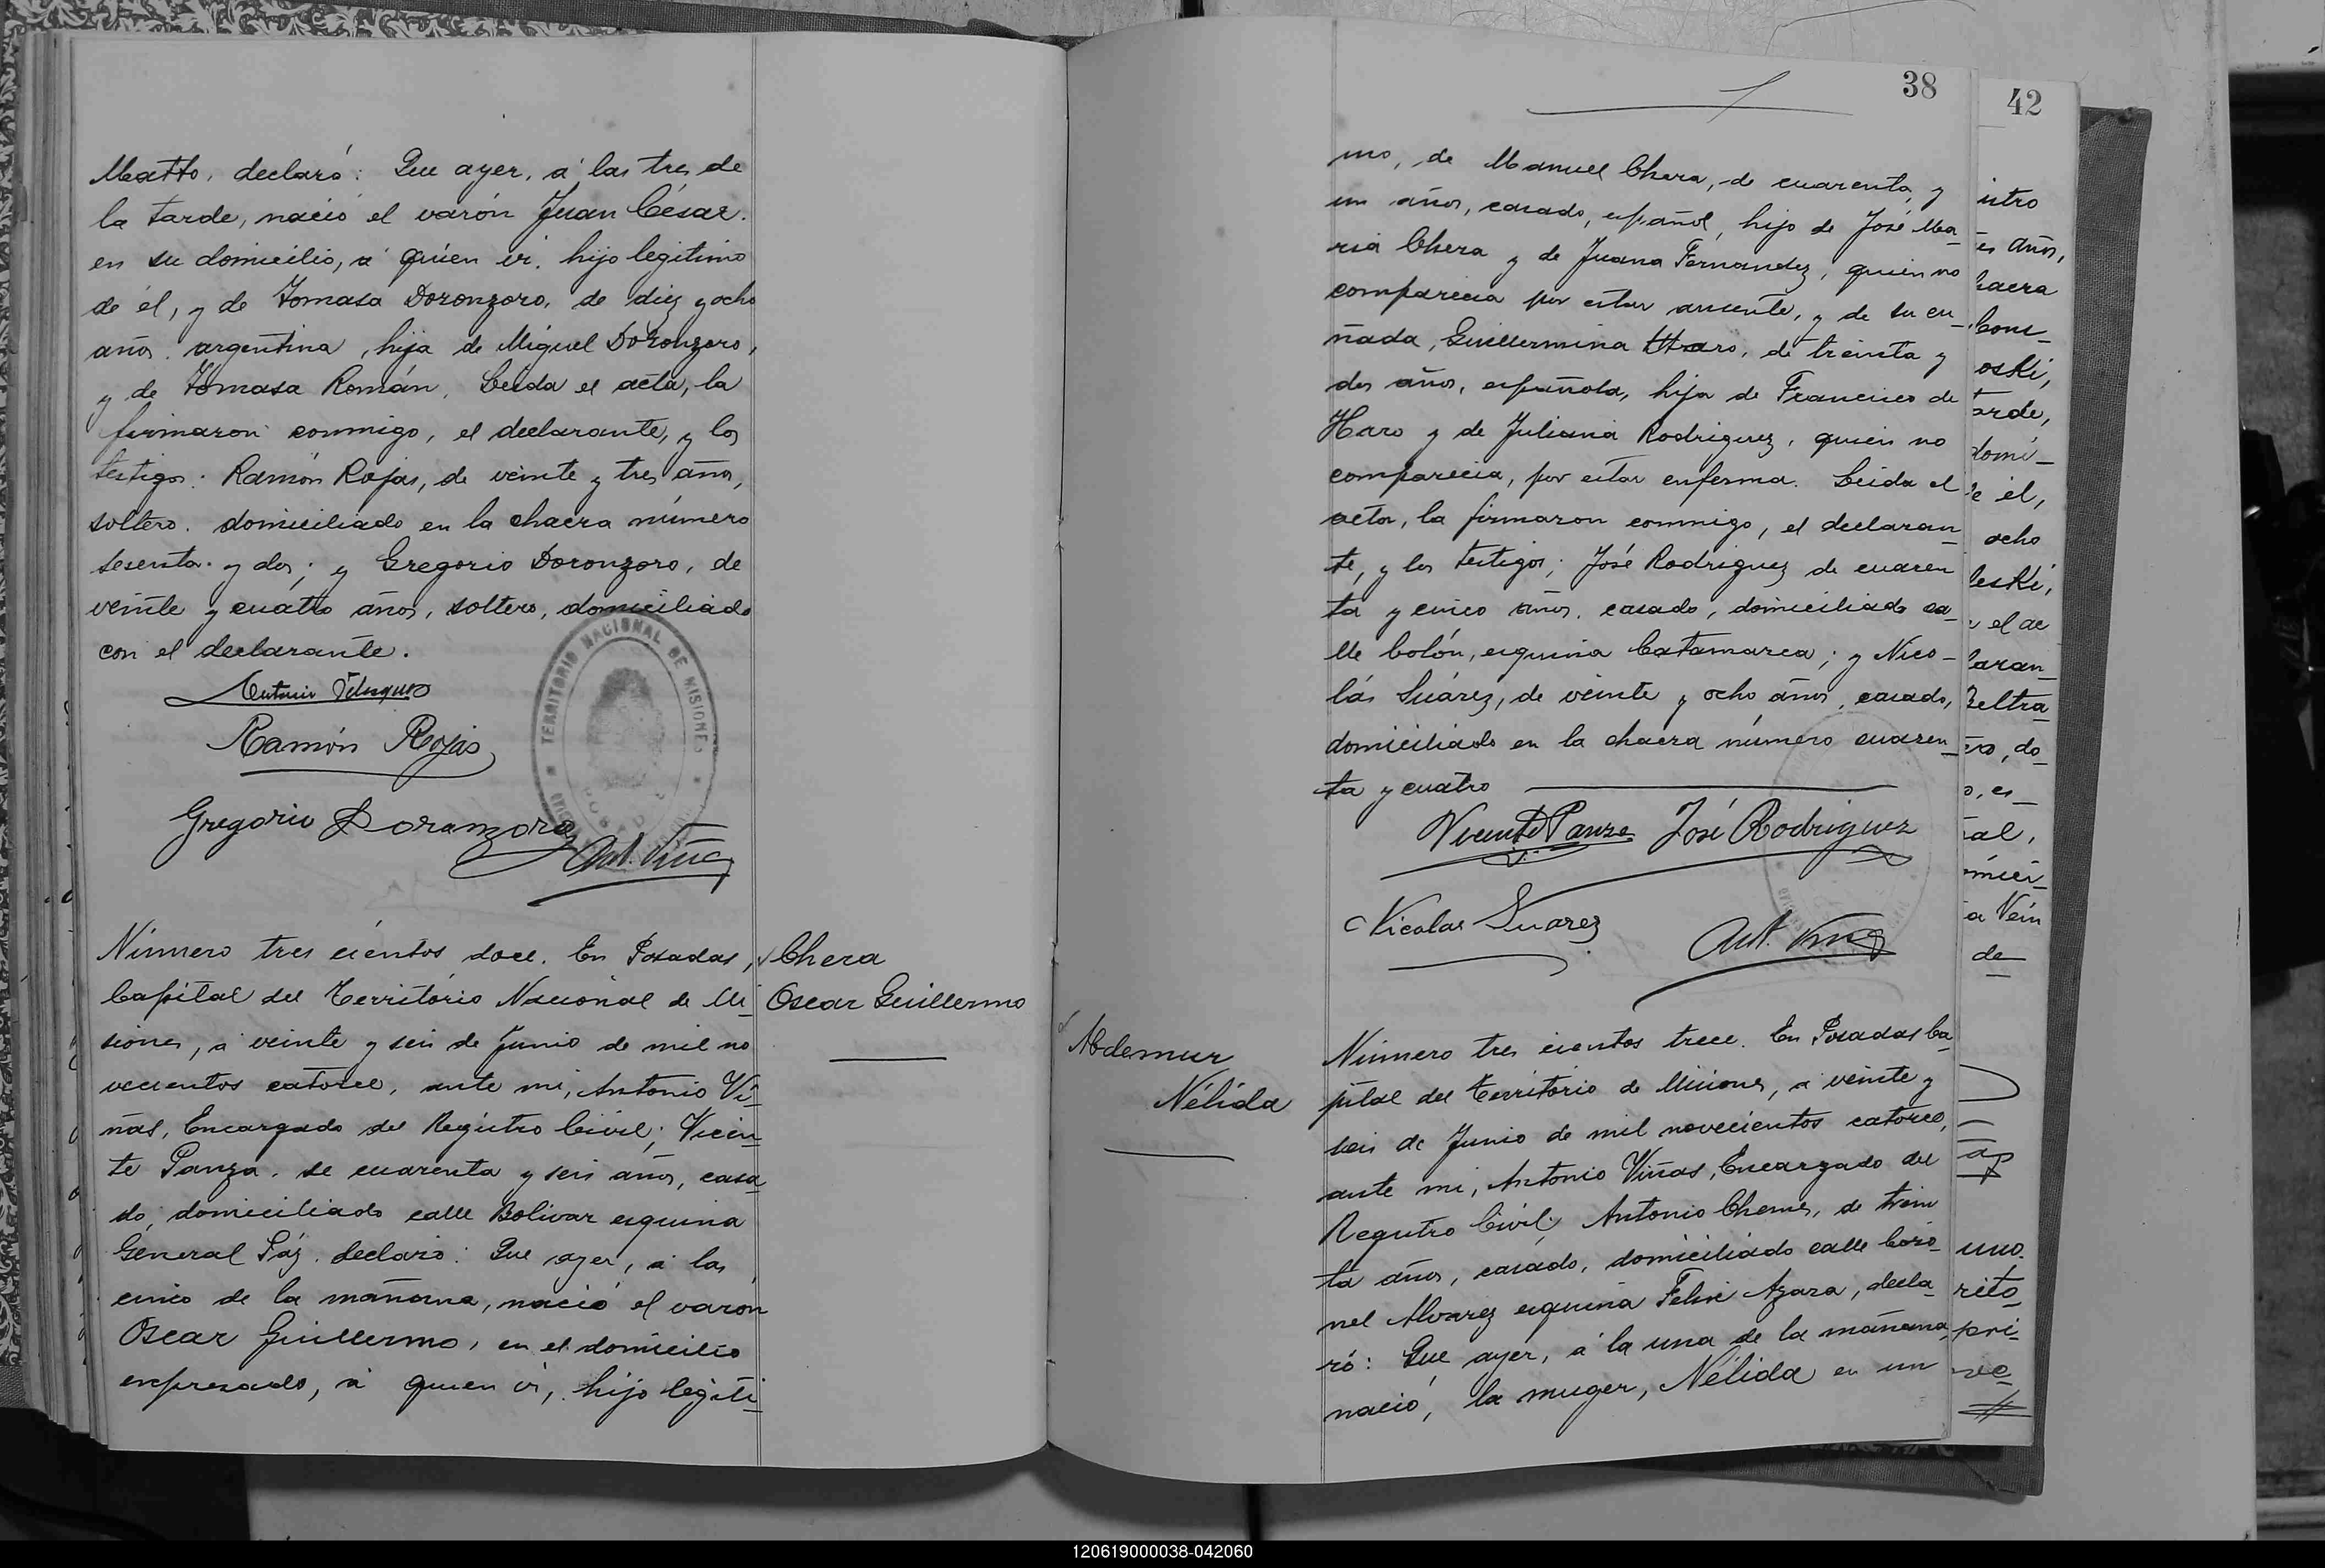 Matto, declaró: Que ayer, á las tres de
la tarde, nació el varón Juan César.
en su domicilio, á quien ví, hijo legítimo
de él, y de Tomasa Doronzoro, de diez y ocho
años, argentina, hija de Miguel Doronzoro,
y de Tomasa Román. Leida el acta, la
firmaron conmigo, el declarante, y los
testigos: Ramón Rojas, de veinte y tres años,
soltero, domiciliado en la chacra número
sesenta y dos; y Gregorio Doronzoro, de
veinte y cuatro años, soltero, domiciliado
con el declarante.
Antonio Velasquez
Ramón Rojas
Gregorio Doronzoro
Ant. Viñas
TERRITORIO NACIONAL DE MISIONES
POSADAS
Número tres cientos doce. En Posadas,
Capital del Territorio Nacional de Mi_
siones, á veinte y seis de Junio de mil no
vecientos catorce, ante mi, Antonio Vi_
ñas, Encargado del Registro Civil; Vicen_
te Panza, de cuarenta y seis años, casa_
do, domiciliado calle Bolivar esquina
General Páz, declaró: Que ayer, á las
cinco de la mañana, nació el varón
Oscar Guillermo, en el domicilio
expresado, á quien ví, hijo legíti_
Chera
Oscar Guillermo
38
mo, de Manuel Chera, de cuarenta y
un años, casado, español, hijo de José Ma_
ria Chera y de Juana Fernandez, quien no
comparecia por estar ausente, y de su cu_
ñada, Guillermina Haro, de treinta y
dos años, española, hija de Francisco de
Haro y de Juliana Rodriguez, quien no
comparecia, por estar enferma. Leida el
acta, la firmaron conmigo, el declaran_
te, y los testigos; José Rodriguez de cuaren
ta y cinco años, casado, domiciliado ca_
lle Colón, esquina Catamarca; y Nico_
lás Suárez, de veinte y ocho años, casado,
domiciliado en la chacra número cuaren_
ta y cuatro
Vicente Panza José Rodriguez
Nicolas Suarez
Ant. Viñas
Abdemur
Nélida
Número tres cientos trece. En Posadas Ca_
pital del Territorio de Misiones, á veinte y
seis de Junio de mil novecientos catorce,
ante mi, Antonio Viñas, Encargado del
Registro Civil; Antonio Chemes, de trein
ta años, casado, domiciliado calle Coro_
nel Alvarez esquina Felix Azara, decla_
ró: Que ayer, á la una de la mañana,
nació, la muger, Nélida en un
42
istro
es años,
hacra
Cons_
oski,
arde,
domi_
e él,
ocho
leski,
el ac
laran_
Beltra_
ero, do_
o, es_
ñal,
omici_
a Vein
de
uno.
rito_
pri_
120619000038-042060